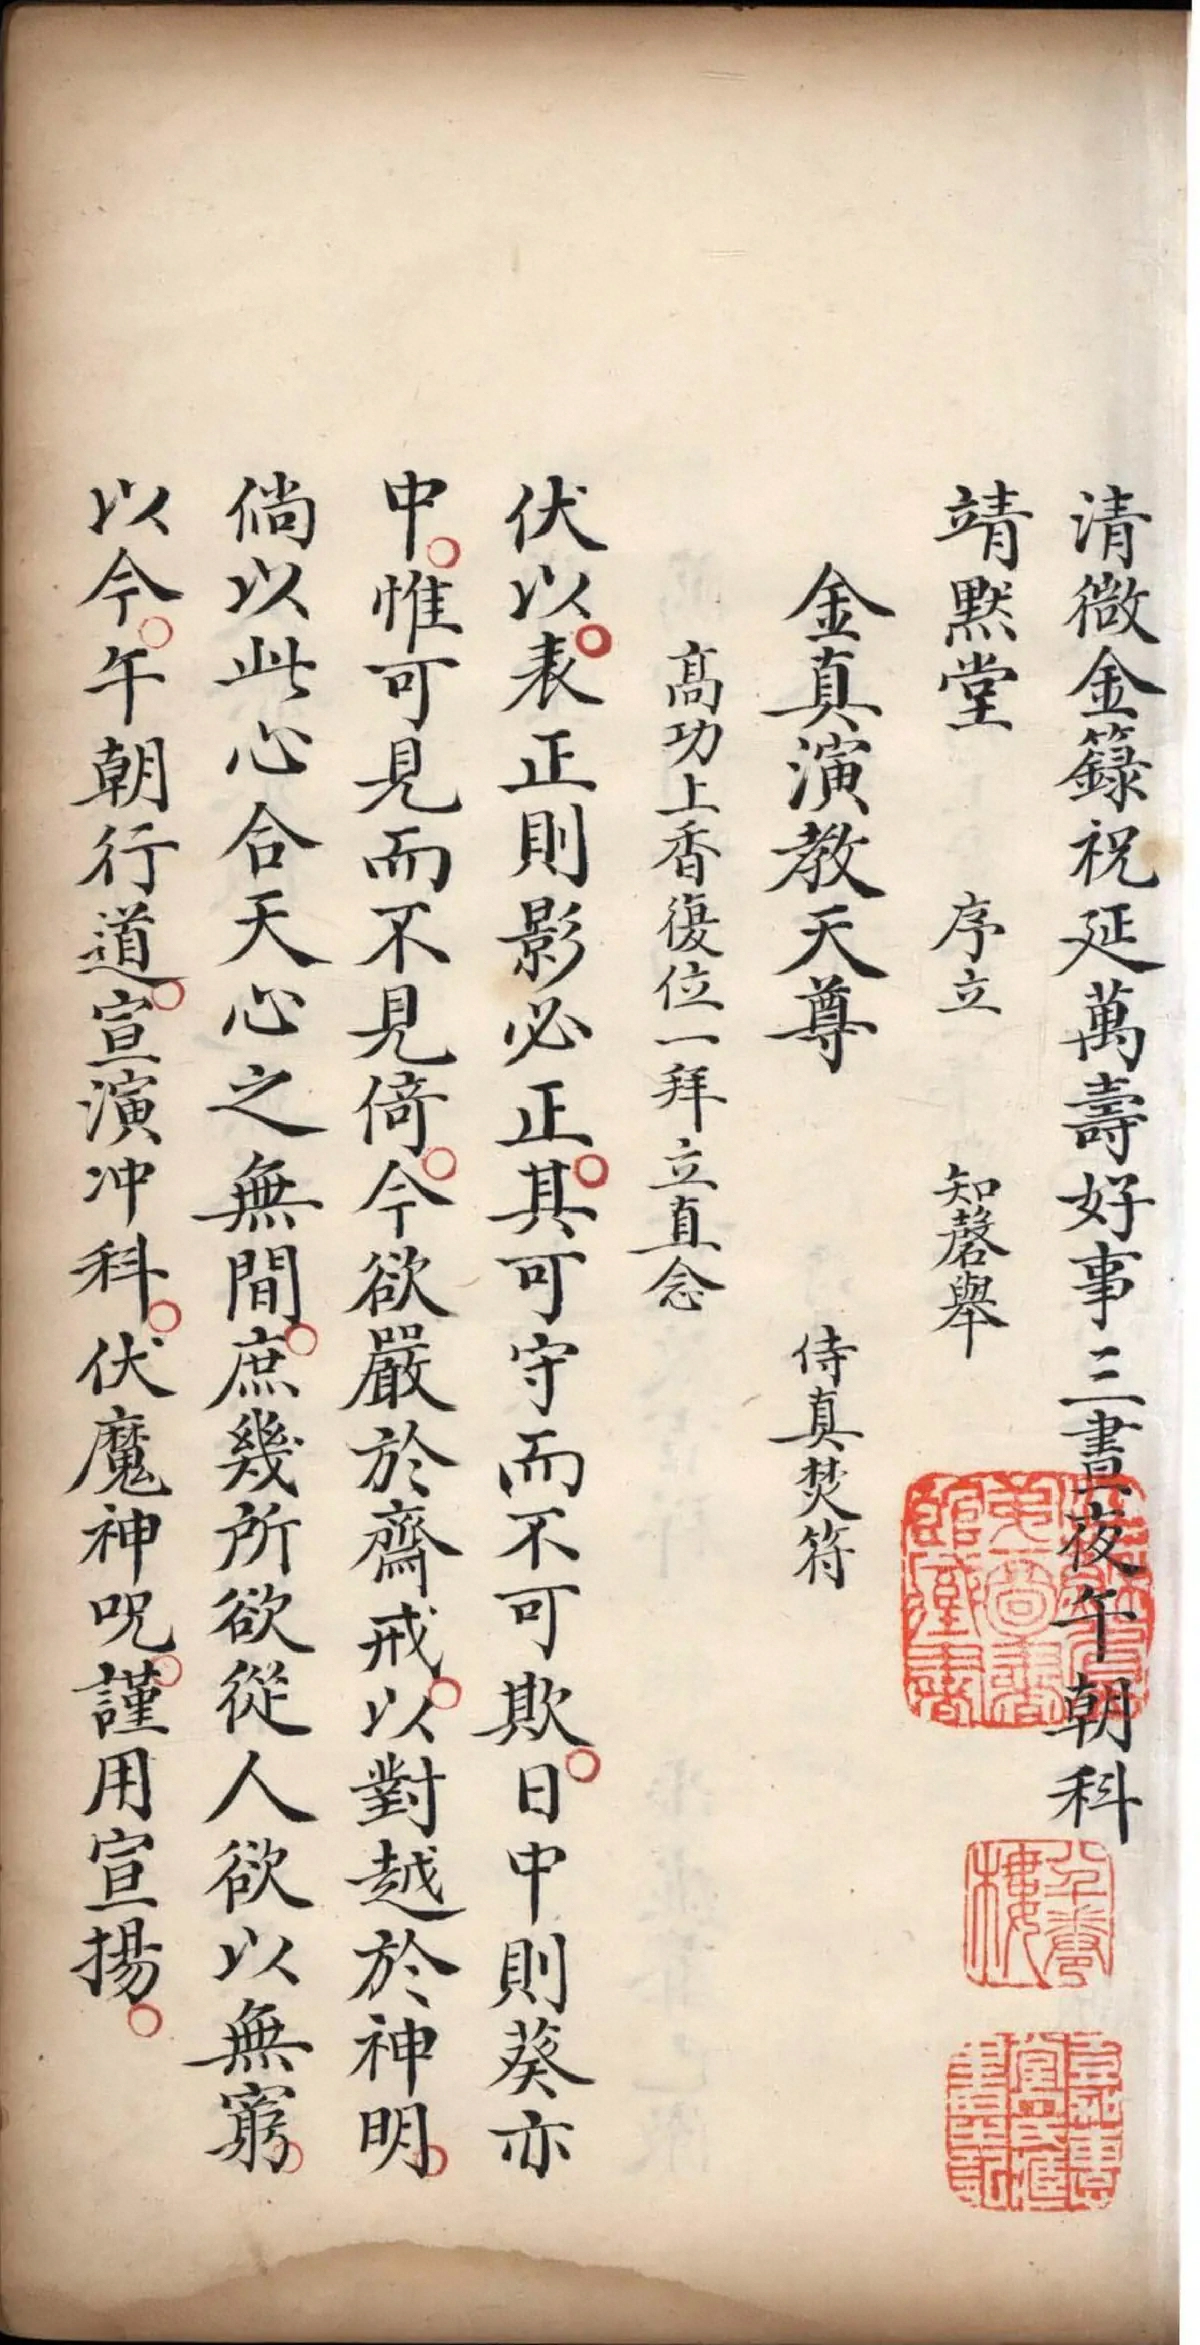 清微金籙祝延萬壽好事三晝夜午朝科
靖默堂　序立　知磬舉
金真演教天尊　侍真焚符
高功上香復位一拜立直念
伏以表正則影必正其可守而不可欺日中則葵亦
中惟可見而不見倚今欲嚴於齋戒以對越於神明
倘以此心合天心之無間庶幾所欲從人欲以無窮
以今午朝行道宣演冲科伏魔神呪謹用宣揚